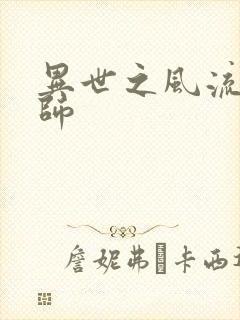 異世之風流
師
詹妮弗·卡西